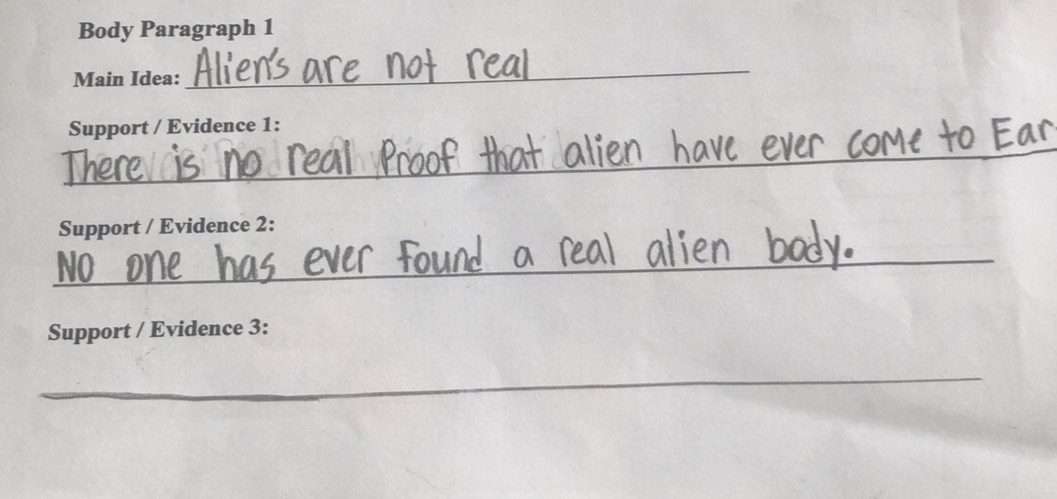 Body Paragraph 1
Main Idea: Alien's are not real
Support / Evidence 1:
There is no real Proof that alien have ever come to Ear
Support / Evidence 2:
No one has ever found a real alien body.
Support / Evidence 3: